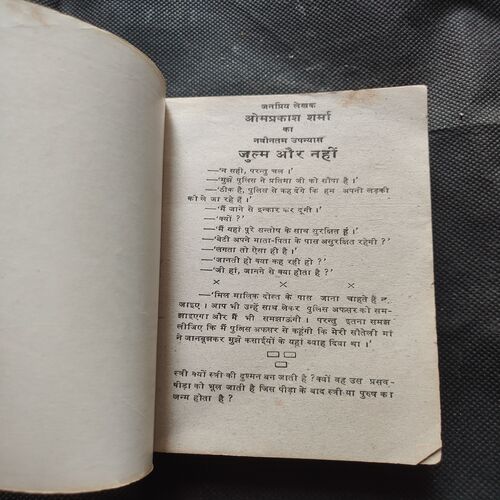 जनप्रिय लेखक
ओमप्रकाश शर्मा
का
नवीनतम उपन्यास
जुल्म और नहीं
—'न सही, परन्तु चल ।'
—'मुझे पुलिस ने प्रतिमा जी को सौंपा है ।'
—'ठीक है, पुलिस से कह देंगे कि हम अपनी लड़की
को ले जा रहे हैं ।'
—'मैं जाने से इन्कार कर दूंगी ।'
—'क्यों ?'
—'मैं यहां पूरे सन्तोष के साथ सुरक्षित हूं ।'
—'बेटी अपने माता-पिता के पास असुरक्षित रहेगी ?'
—'लगता तो ऐसा ही है ।'
—'जानती हो क्या कह रही हो ?'
—'जी हां, जानने से क्या होता है ?'
× × ×
—'मिल मालिक दोस्त के पास जाना चाहते हैं न,
जाइए । आप भी उन्हें साथ लेकर पुलिस अफसर को सम-
झाइएगा और मैं भी समझाऊंगी । परन्तु इतना समझ
लीजिए कि मैं पुलिस अफसर से कहूंगी कि मेरी सौतेली मां
ने जानबूझकर मुझे कसाईयों के यहां ब्याह दिया था ।'
स्त्री क्यों स्त्री की दुश्मन बन जाती है ? क्यों वह उस प्रसव-
पीड़ा को भूल जाती है जिस पीड़ा के बाद स्त्री या पुरुष का
जन्म होता है ?